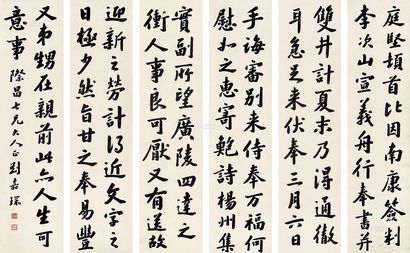 庭堅頓首前奉簽判
李次山宣義舟行奉書并
雙井計夏末乃得通徹
耳急足来伏奉三月六日
手誨審別来侍奉萬福何
慰如之惠寄鮑詩楊州集
實副所望廣陵四達之
衝人事良可厭又有送故
迎新之勞計得近文字之
日極少然旨甘之奉易豐
又弟甥在親前此亦人生可
意事 際昌七兄大人正 劉嘉琛